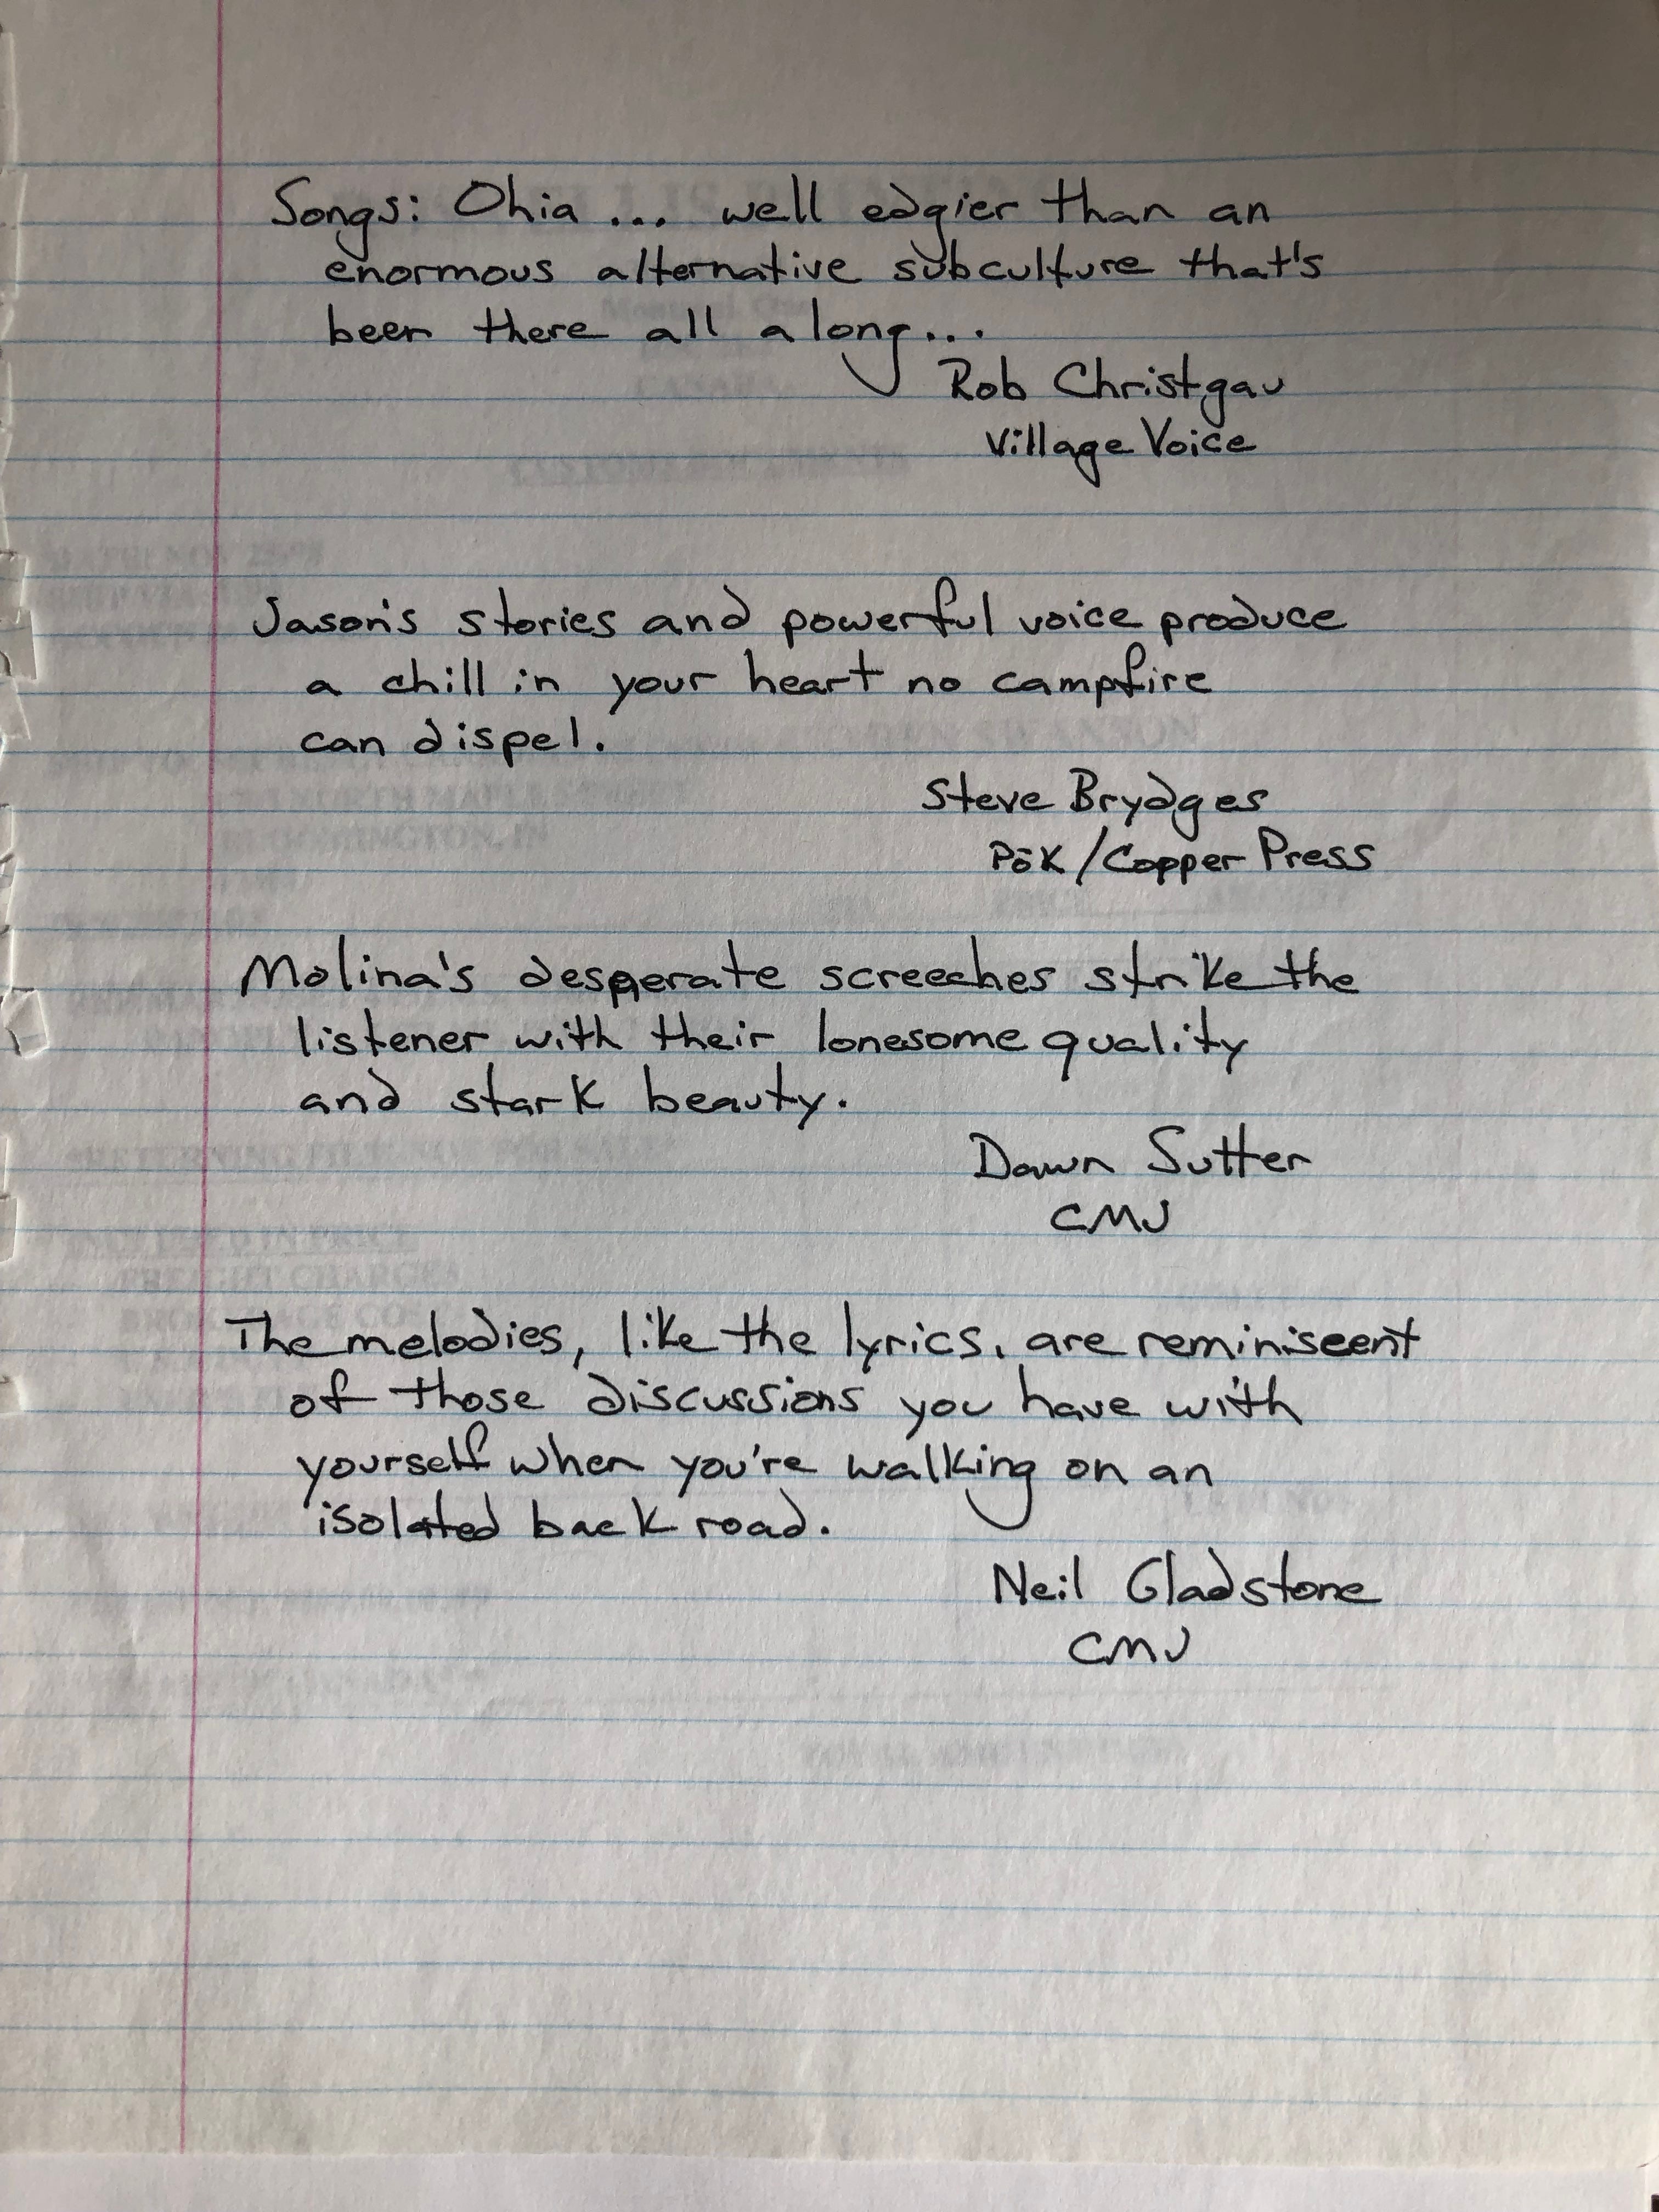 Songs: Ohia ... well edgier than an
enormous alternative subculture that's
been there all along...
Rob Christgau
Village Voice
Jason's stories and powerful voice produce
a chill in your heart no campfire
can dispel.
Steve Brydges
Pōk/Copper Press
Molina's desperate screeches strike the
listener with their lonesome quality
and stark beauty.
Dawn Sutter
CMJ
The melodies, like the lyrics, are reminiscent
of those discussions you have with
yourself when you're walking on an
isolated back road.
Neil Gladstone
CMJ